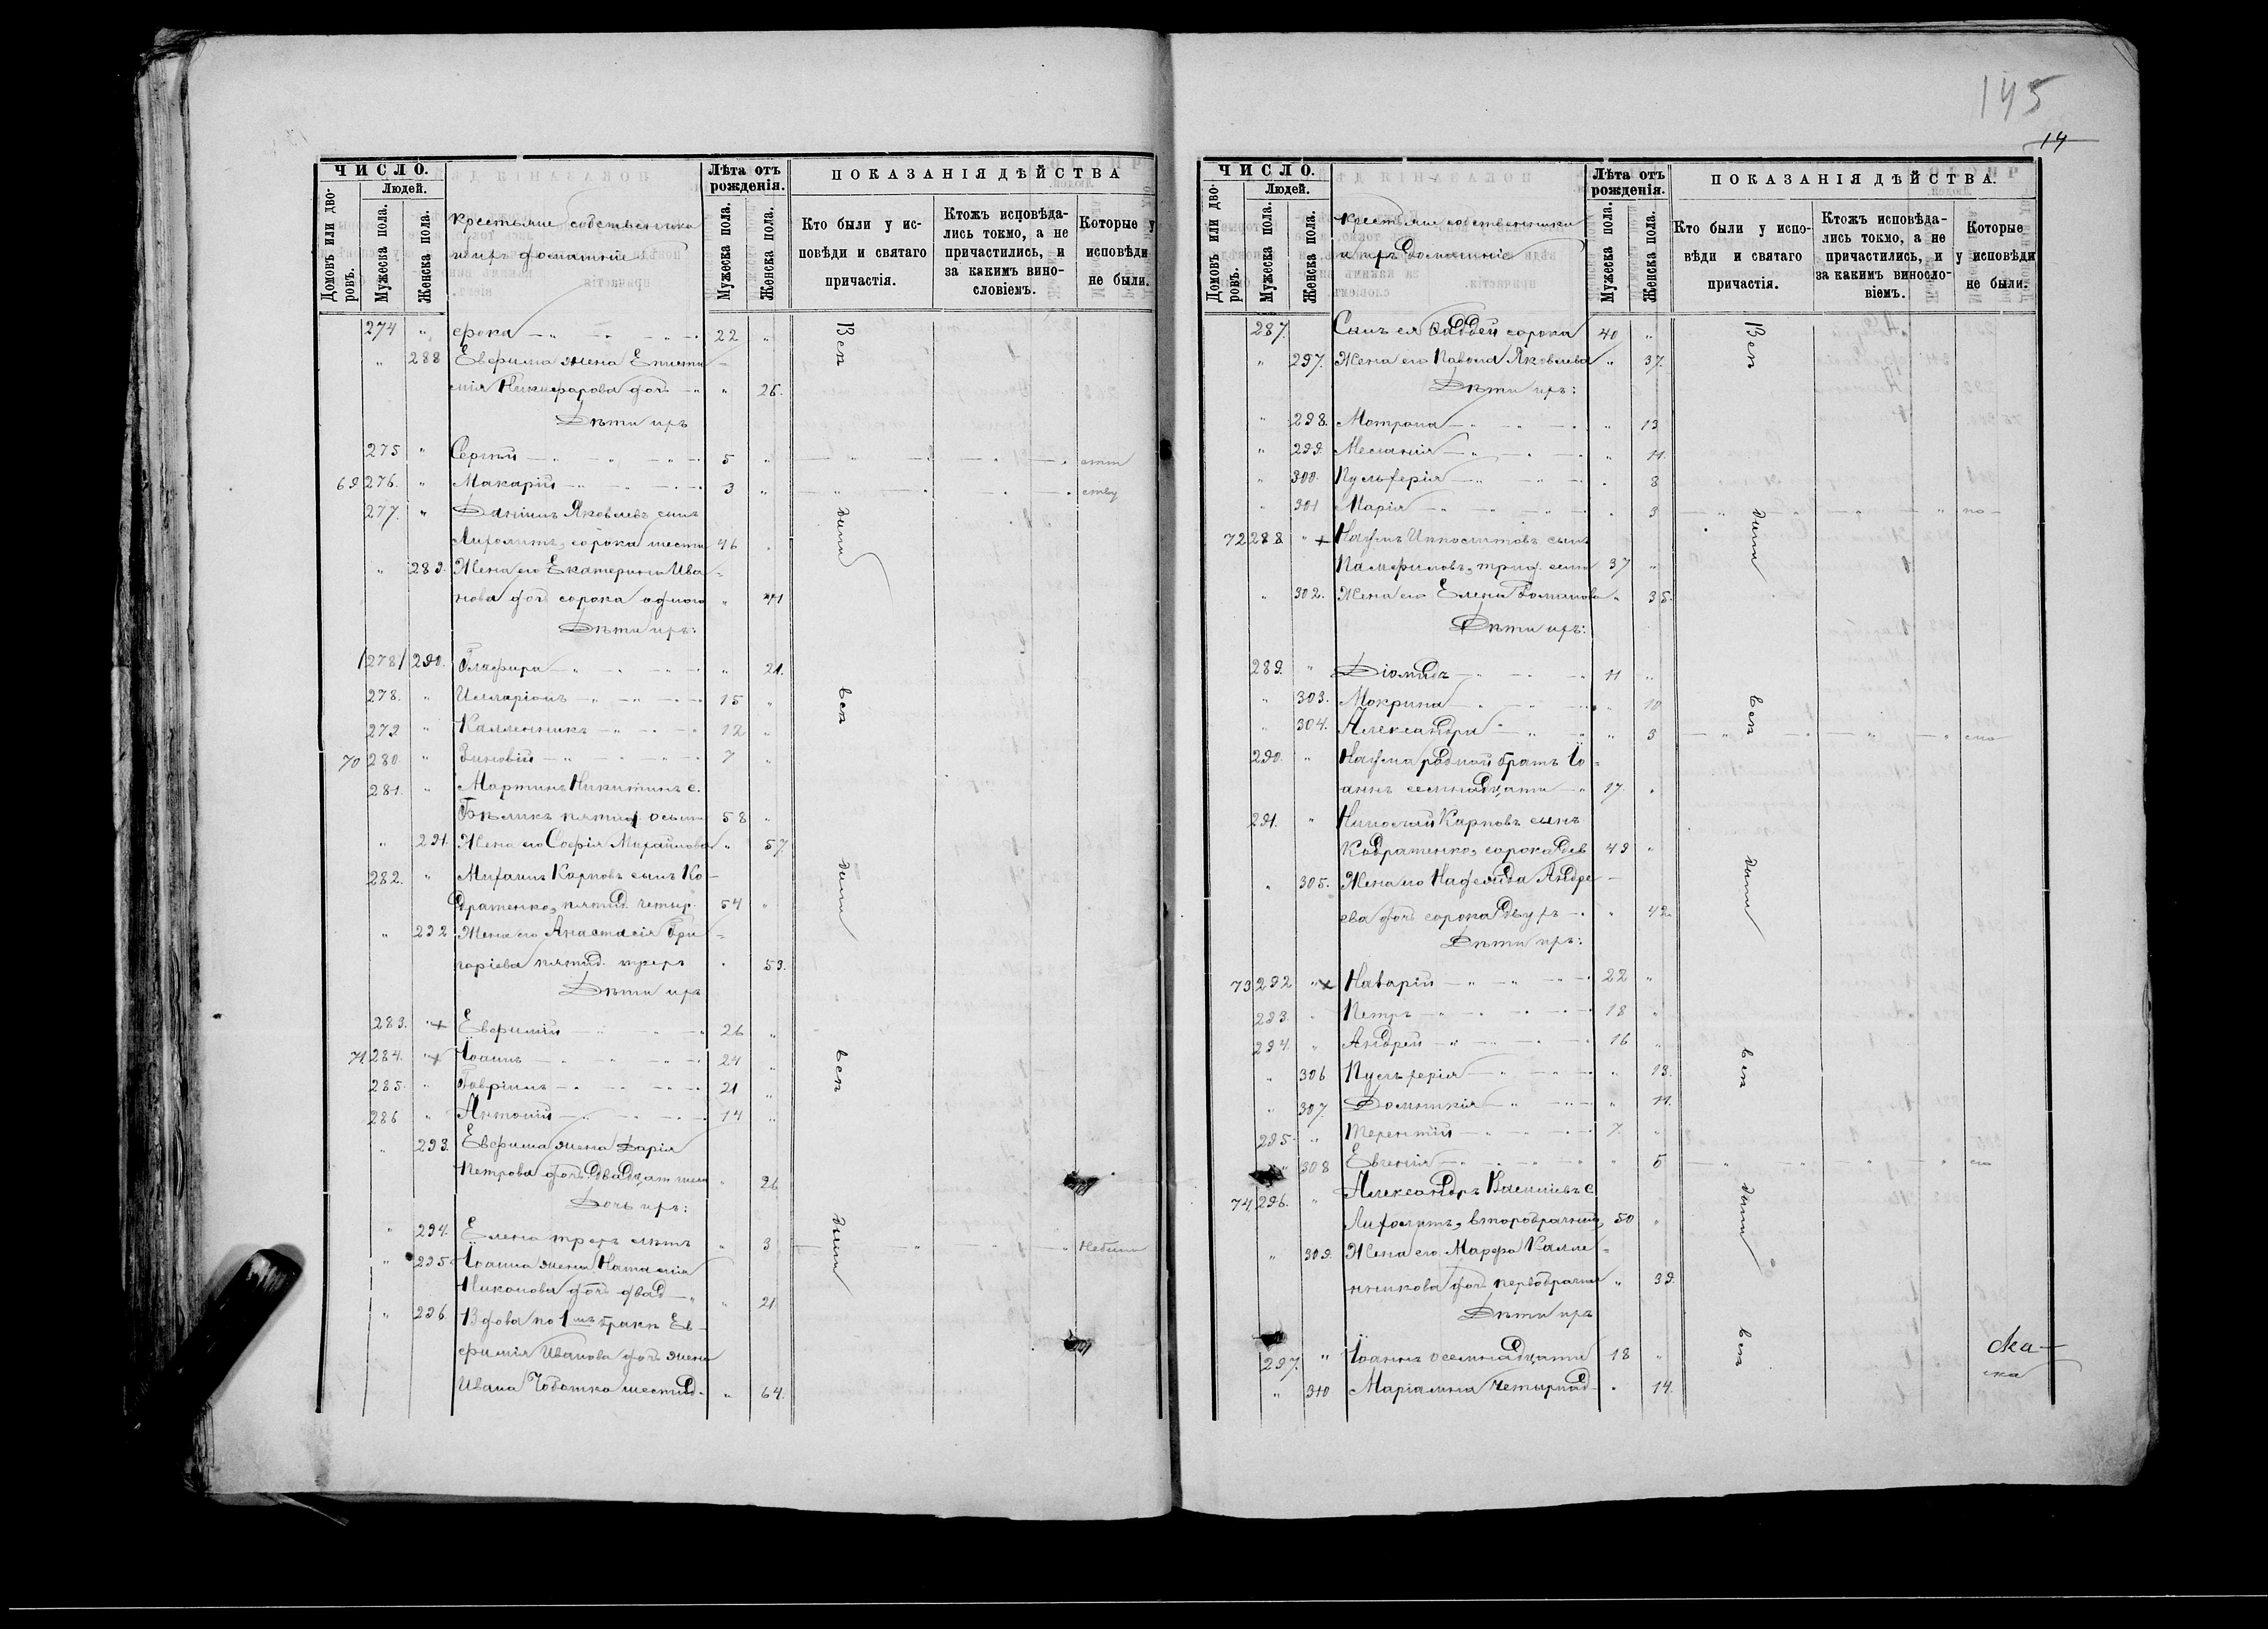 145
14
ЧИСЛО.
Людей.
Домовъ или дворовъ.
Мужеска пола.
Женска пола.
Крестьяне собственники
и ихъ домашніе
Лѣта отъ рожденія.
Мужеска пола.
Женска пола.
ПОКАЗАНІЯ ДѢЙСТВА
Кто были у исповѣди и святаго причастія.
Ктожъ исповѣдались токмо, а не причастились, и за какимъ винословіемъ.
Которые у исповѣди не были.
274 " 22 "
" 288 Евфима жена
Никифорова доч. " 26.
Дѣти ихъ
275 " Сергій 5 "
69 276. " Макарій 3 "
277. " Даніилъ Яковлевъ сынъ
сорока шести 46
" 289. Жена его Екатерина Ива-
нова доч. сорока одного " 41
Дѣти ихъ:
/278/ 290. Глафира " 21.
278. " Илларіонъ 15 "
279 " Каллиникъ 12 "
70 280. " Зиновій 7 "
281. " Мартинъ Никитинъ с.
Бѣликъ пятид. осьми 58 "
" 291. Жена его Софія Михайлова " 57
282. " Михаилъ Карповъ сынъ Ко-
дратенко, пятид. четыр. 54 "
" 292 Жена его Анастасія Гри-
горіева пятид. трехъ 53.
Дѣти ихъ
283. " + Евфимій 26 "
71 284. " + Іоаннъ 24 "
285. " Гавріилъ 21 "
286 " Антоній 14 "
" 293. Евфима жена Дарія
Петрова доч. двадцат шести " 26
Дочь ихъ:
" 294. Елена трехъ лѣтъ " 3
" 295 Іоанна жена Наталія
Никонова доч. двад. " 21
" 296 Вдова по 1мъ бракѣ Ев-
фимія Иванова доч. жена
Ивана Чоботка шестид. " 64.
Всѣ
были
всѣ
были
всѣ
были
ЧИСЛО.
Людей.
Домовъ или дворовъ.
Мужеска пола.
Женска пола.
Крестьяне собственники
и ихъ домашніе
Лѣта отъ рожденія.
Мужеска пола.
Женска пола.
ПОКАЗАНІЯ ДѢЙСТВА.
Кто были у исповѣди и святаго причастія.
Ктожъ исповѣдались токмо, а не причастились, и за какимъ винословіемъ.
Которые у исповѣди не были.
287. Сынъ ея Фаддей сорока 40 "
" 297. Жена его Павола Яковлева " 37.
Дѣти ихъ:
" 298. Мотрона " 13
" 299. Меланія " 11.
" 300. Пульхерія 8
" 301 Марія 3
72 288 " + Наумъ Ипполитовъ сынъ
Памфиловъ, трид. семи 37 "
" 302. Жена его Елена " 35.
Дѣти ихъ:
289. " Діомидъ 11 "
" 303. Мокрина " 10
" 304. Александра " 3
290. " Наума родной братъ Іо-
аннъ семнадцати 17.
291. " Николай Карповъ сынъ
Кодратенко, сорока дев 49 "
" 305. Жена его Надежда Андре-
ева доч. сорока двухъ " 42.
Дѣти ихъ:
73 292 " + Назарій 22 "
293. " Петръ 18 "
294. " Андрей 16 "
" 306 Пульхерія " 13.
" 307. Домникія " 11.
295. " Терентій 7. "
" 308 Евгенія " 5
74 296. " Александръ Василіевъ с
второбрачный, 50 "
" 309. Жена его Марфа Калли-
никова доч. первобрачна " 39.
Дѣти ихъ
297. " Іоаннъ осемнадцати 18 "
" 310 Маріамна четырнад. 14.
Всѣ
были
всѣ
были
всѣ
были
всѣ